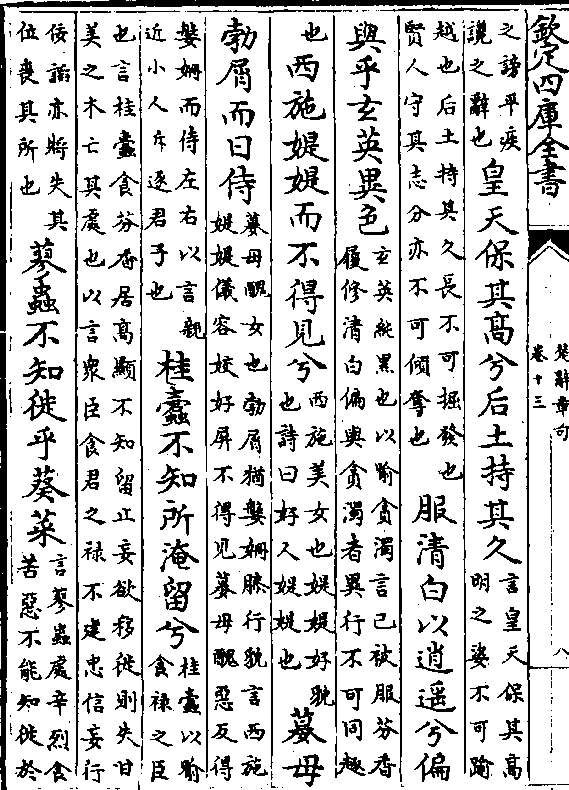 欽定四庫全書
楚辭章句
卷十三
八
之謗平疾
說之辭也
皇天保其高兮后土持其久
言皇天保其高
明之姿不可踰
越也后土持其久長不可掘發也
賢人守其志分亦不可傾奪也
服清白以逍遙兮偏
與乎玄英異色
玄英純黑也以喻貪濁言己被服芬香
履修清白偏與貪濁者異行不可同趣
也
西施媞媞而不得見兮
西施美女也媞媞好貌
也詩曰好人媞媞也
蟇母
勃屑而日侍
蟇母醜女也勃屑猶媻姍膝行貌言西施
媞媞儀容姣好屏不得見蟇母醜惡反得
媻姍而侍左右以言親
近小人斥逐君子也
桂蠹不知所淹留兮
桂蠹以喻
食祿之臣
也言桂蠹食芬香居高顯不知留止妄欲移徙則失甘
美之木亡其處也以言衆臣食君之祿不建忠信妄行
佞諂亦將失其
位喪其所也
蓼蟲不知徙乎葵菜
言蓼蟲處辛烈食
苦惡不能知徙於